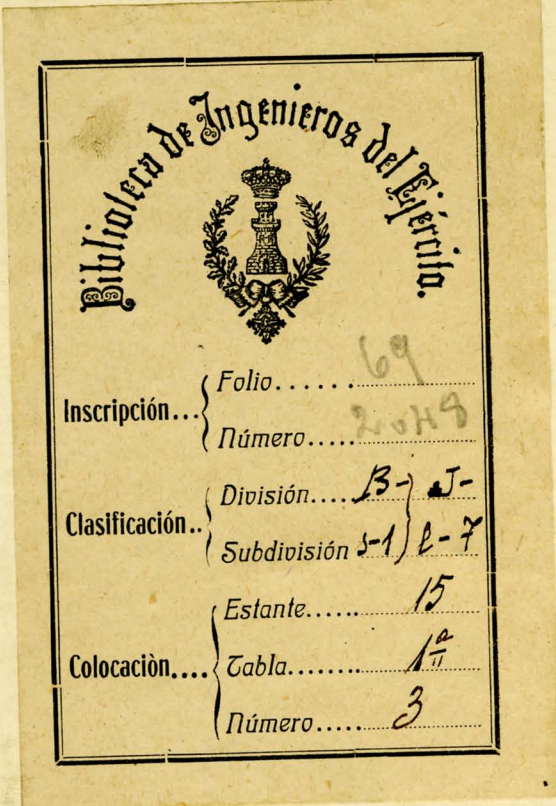 Biblioteca de Ingenieros del Ejército.
Inscripción... Folio...... 69
Número..... 2048
Clasificación.. División.... B- J-
Subdivisión s-1 l-7
Colocaciòn.... Estante...... 15
Tabla........ 1ª
Número..... 3